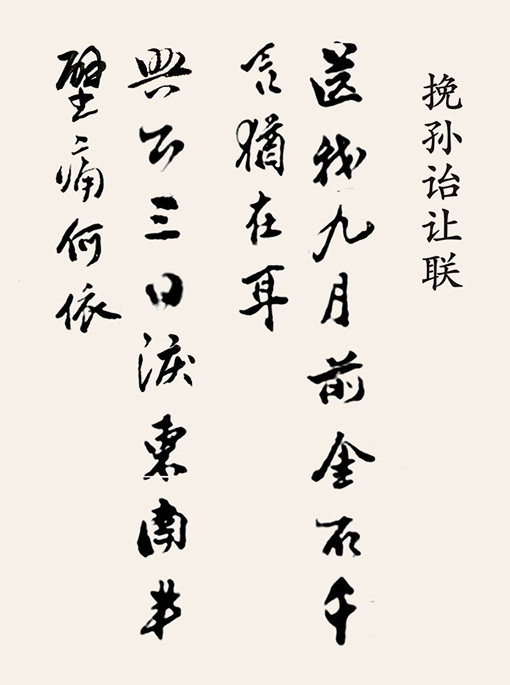 挽孙诒让联
送我九月前金石千
言猶在耳
與公三日淚東南半
壁痛何依